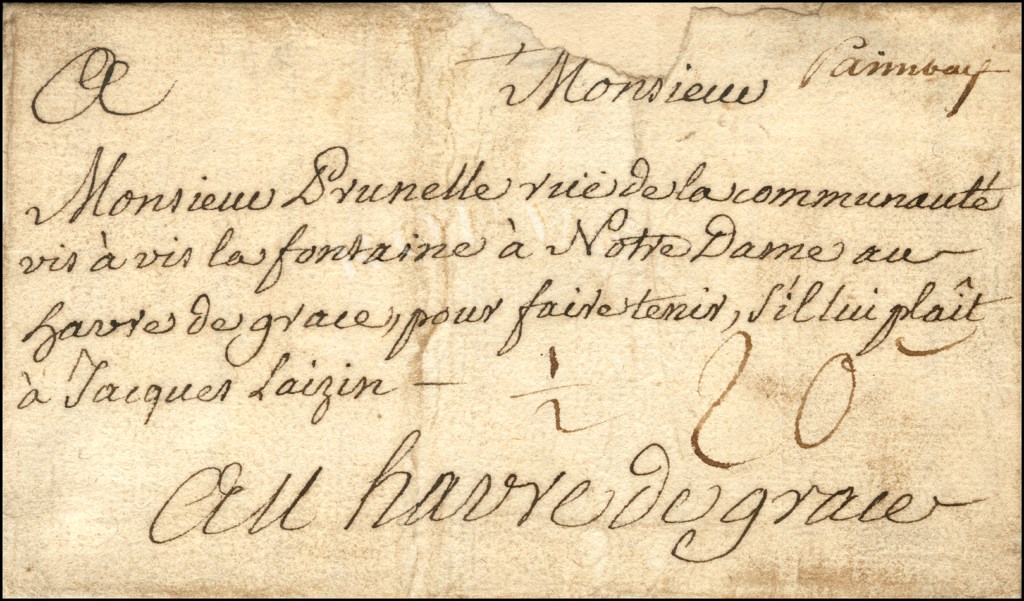 A Monsieur
Monsieur Prunelle rüe de la communauté
vis à vis la fontaine à Notre Dame au
havre de grace, pour faire tenir, s'il lui plaît
à Jacques Laizin —
½ 20
Au havre de grace